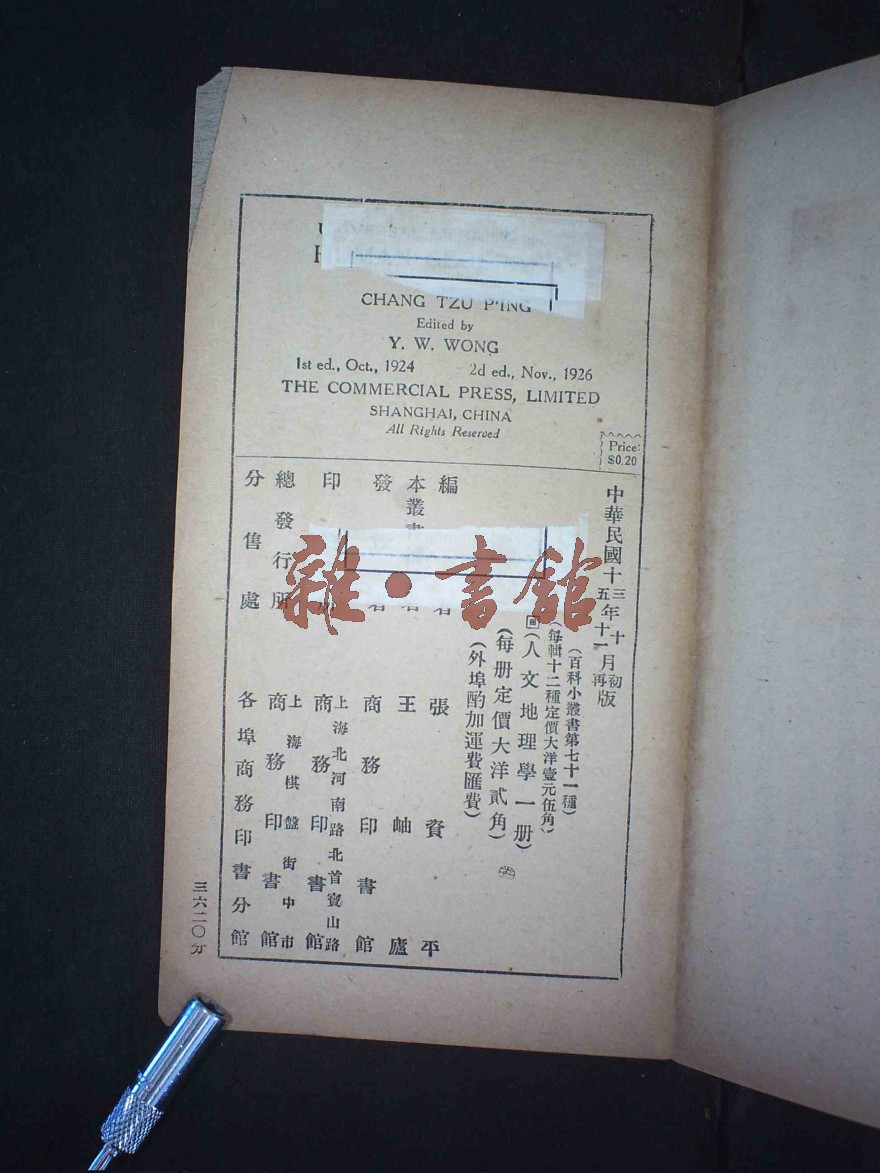 CHANG TZU P'ING
Edited by
Y. W. WONG
1st ed., Oct., 1924 2d ed., Nov., 1926
THE COMMERCIAL PRESS, LIMITED
SHANGHAI, CHINA
All Rights Reserved
Price:
$0.20
中華民國十三年十月初版
五十一再
(百科小叢書第七十一種)
(每輯十二種定價大洋壹元伍角)
(人文地理學一册)
(每册定價大洋貳角)
(外埠酌加運費匯費)
編 張資平
本叢書 王岫廬
發 商務印書館
印 上海北河南路北首寶山路
商務印書館
總發行所 上海棋盤街中市
商務印書館
分售處 各埠商務印書分館
三六二〇分
雜·書館